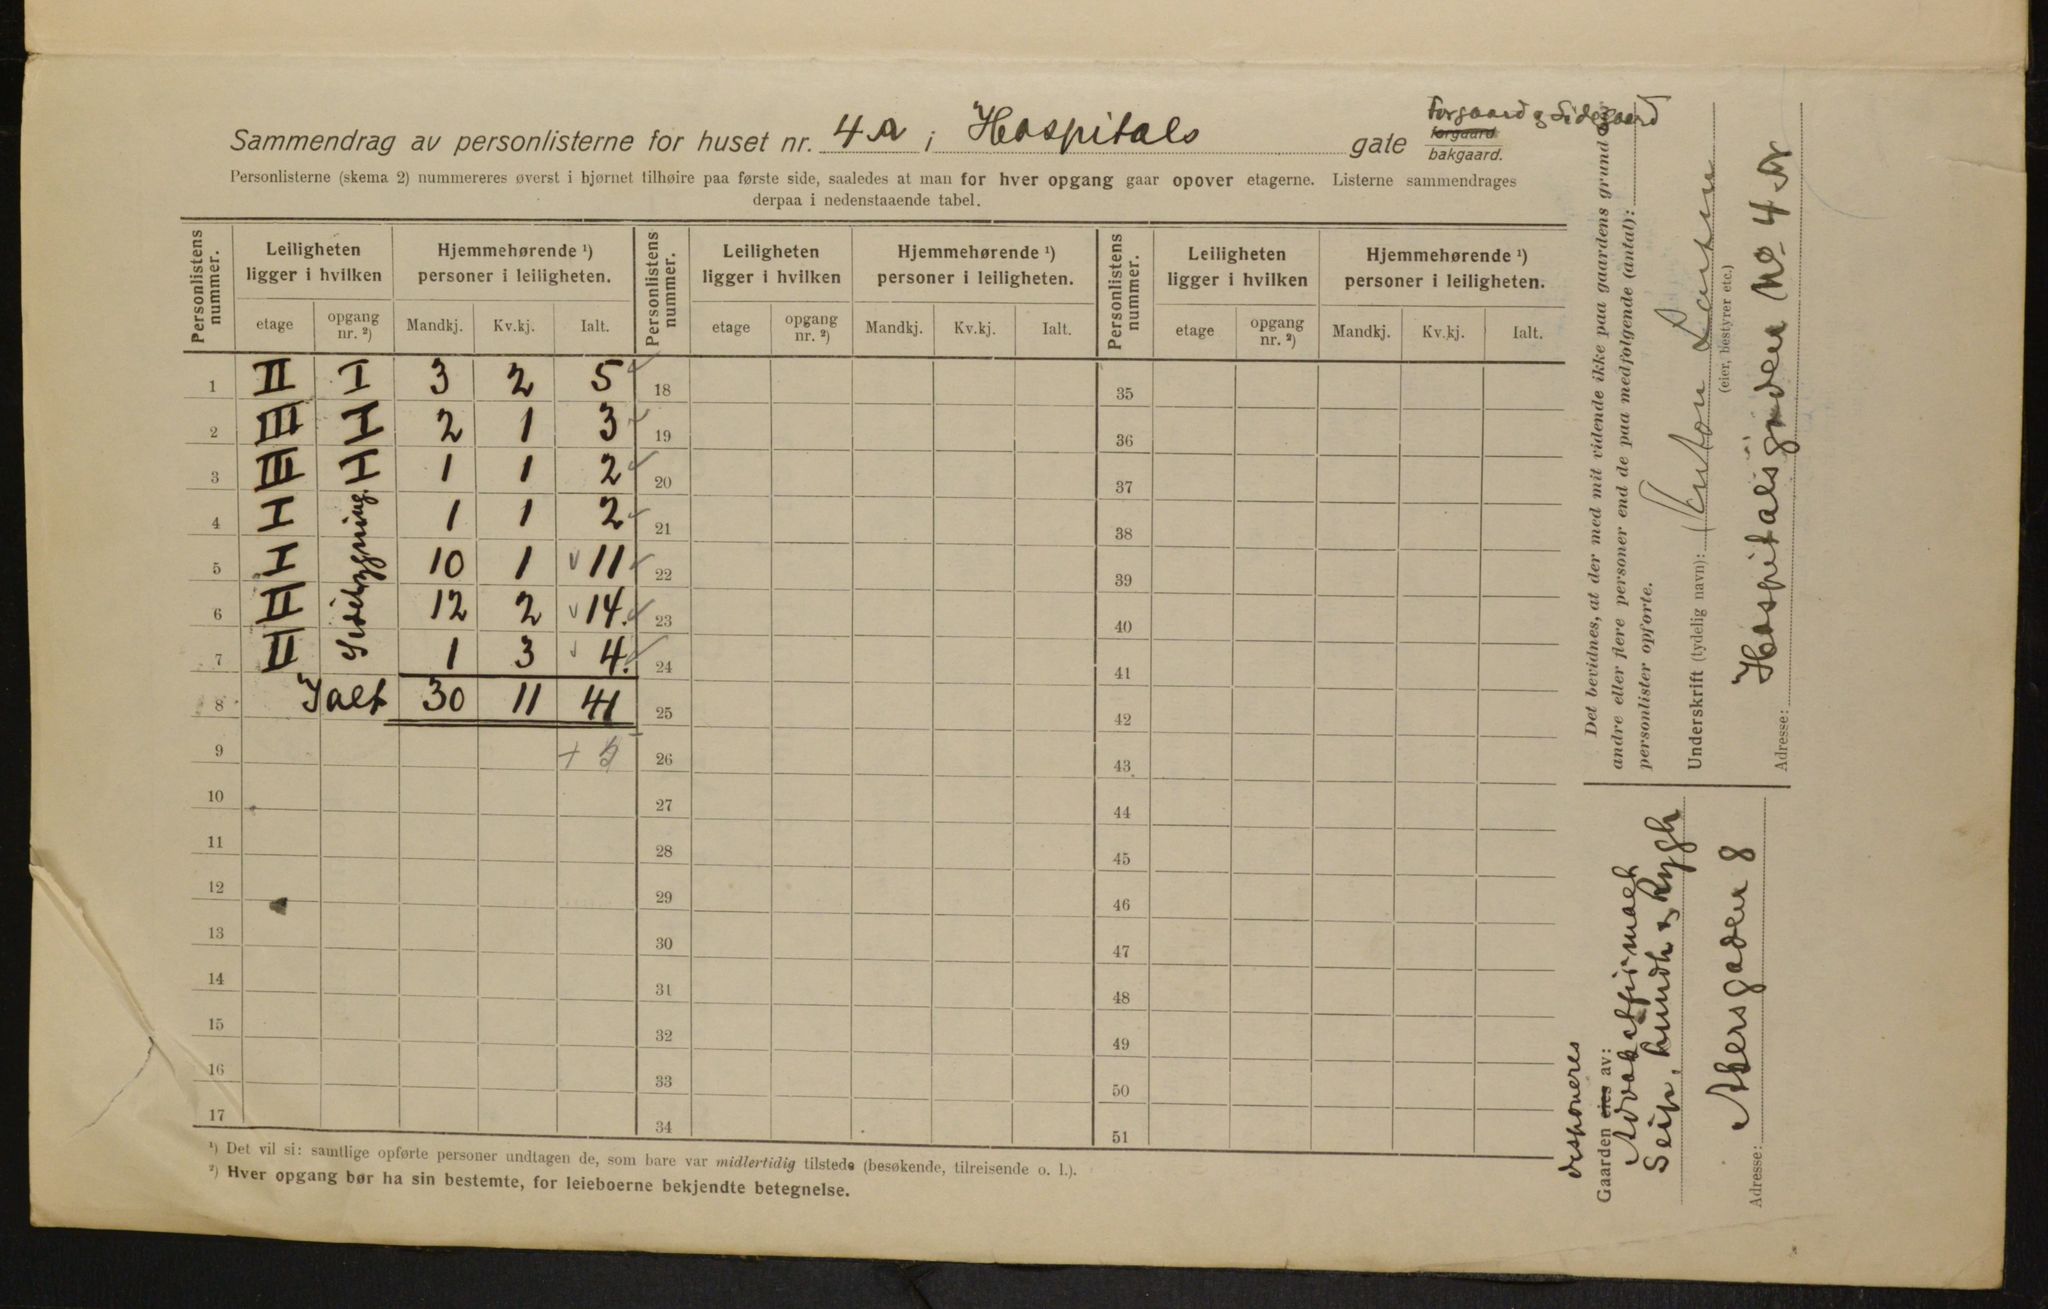 Sammendrag av personlisterne for huset nr. 4a i Hospitals gate forgaard bakgaard. Forgaard og Sidegaard
Personlisterne (skema 2) nummereres øverst i hjørnet tilhøire paa første side, saaledes at man for hver opgang gaar opover etagerne. Listerne sammendrages
derpaa i nedenstaaende tabel.
Personlistens nummer. Leiligheten ligger i hvilken Hjemmehørende ¹) personer i leiligheten. Personlistens nummer. Leiligheten ligger i hvilken Hjemmehørende ¹) personer i leiligheten. Personlistens nummer. Leiligheten ligger i hvilken Hjemmehørende ¹) personer i leiligheten.
etage opgang nr. ²) Mandkj. Kv.kj. Ialt. etage opgang nr. ²) Mandkj. Kv.kj. Ialt. etage opgang nr. ²) Mandkj. Kv.kj. Ialt.
1 II I 3 2 5 18 35
2 III I 2 1 3 19 36
3 III I 1 1 2 20 37
4 I Sidebygning. 1 1 2 21 38
5 I 10 1 11 22 39
6 II 12 2 14. 23 40
7 II 1 3 4. 24 41
8 Ialt 30 11 41 25 42
9 + 5 26 43
10 27 44
11 28 45
12 29 46
13 30 47
14 31 48
15 32 49
16 33 50
17 34 51
¹) Det vil si: samtlige opførte personer undtagen de, som bare var midlertidig tilstede (besøkende, tilreisende o. l.).
²) Hver opgang bør ha sin bestemte, for leieboerne bekjendte betegnelse.
Det bevidnes, at der med mit vidende ikke paa gaardens grund bor
andre eller flere personer end de paa medfølgende (antal):
personlister opførte.
Underskrift (tydelig navn): Anton Larsen
(eier, bestyrer etc.)
Adresse: Hospitalsgaden No 4 A
disponeres
Gaarden eies av: Advokatfirmaet
Seip, Lundh og Rygh
Adresse: Akersgaden 8